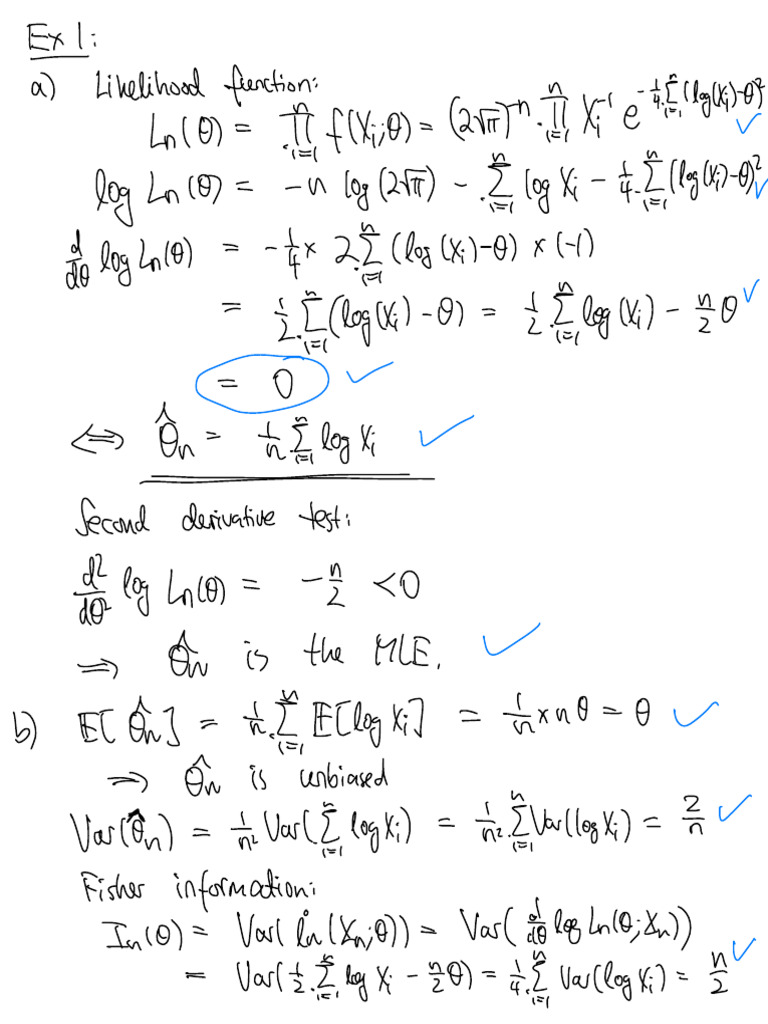 Ex 1:
a) Likelihood function:
Ln(θ) = ∏_{i=1}^{n} f(Xi;θ) = (2√π)^{-n} · ∏_{i=1}^{n} Xi^{-1} e^{-1/4 · Σ_{i=1}^{n} (log(Xi)-θ)^2} ✓
log Ln(θ) = -n log(2√π) - Σ_{i=1}^{n} log Xi - 1/4 · Σ_{i=1}^{n} (log(Xi)-θ)^2 ✓
d/dθ log Ln(θ) = -1/4 × 2 · Σ_{i=1}^{n} (log(Xi)-θ) × (-1)
= 1/2 · Σ_{i=1}^{n} (log(Xi)-θ) = 1/2 · Σ_{i=1}^{n} log(Xi) - n/2 θ ✓
= 0 ✓
⇔ θ̂n = 1/n · Σ_{i=1}^{n} log Xi ✓
Second derivative test:
d²/dθ² log Ln(θ) = -n/2 < 0
⇒ θ̂n is the MLE. ✓
b) E[θ̂n] = 1/n · Σ_{i=1}^{n} E[log Xi] = 1/n × nθ = θ ✓
⇒ θ̂n is unbiased
Var(θ̂n) = 1/n² Var(Σ_{i=1}^{n} log Xi) = 1/n² · Σ_{i=1}^{n} Var(log Xi) = 2/n ✓
Fisher information:
In(θ) = Var(l̇n(Xn;θ)) = Var(d/dθ log Ln(θ;Xn))
= Var(1/2 · Σ_{i=1}^{n} log Xi - n/2 θ) = 1/4 · Σ_{i=1}^{n} Var(log Xi) = n/2 ✓